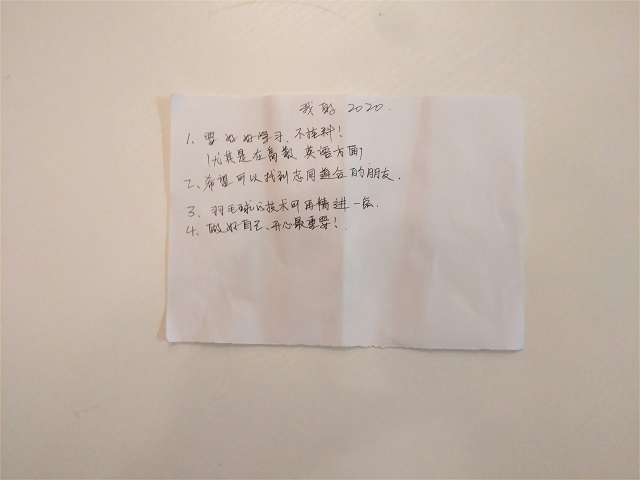 我的 2020.
1、要好好学习、不挂科!
(尤其是在高数 英语方面)
2、希望可以找到志同道合的朋友.
3、羽毛球的技术可再精进一层
4、做好自己、开心最重要!